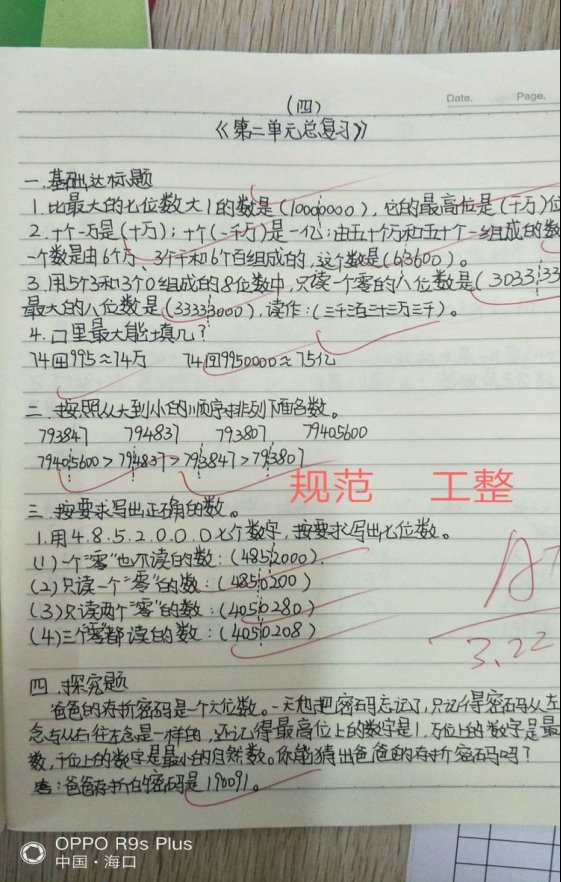 Date.
Page.
(四)
《第二单元总复习》
一.基础达标题
1.比最大的七位数大1的数是(10000000),它的最高位是(十万)位
2.十个一万是(十万);十个(一千万)是一亿;由五十个万和五十个一组成的数
一个数是由6个万、3个千和6个百组成的,这个数是(63600)。
3.用5个3和3个0组成的8位数中,只读一个零的八位数是(303333
最大的八位数是(33333000),读作:(三千三百三十三万三千)。
4.口里最大能填几?
74回995≈74万 74回9950000≈75亿
二.按照从大到小的顺序排列下面各数。
793847 794837 793807 79405600
79405600>794837>793847>793807
规范 工整
三.按要求写出正确的数。
1.用4.8.5.2.0.0.0七个数字,按要求写出七位数。
(1)一个“零”也不读的数:(4852000).
(2)只读一个“零”的数:(4850200)
(3)只读两个“零”的数:(4050280)
(4)三个“零”都读的数:(4050208)
A+
3.22
四.探究题
爸爸的存折密码是一个六位数。一天他把密码忘记了,只记得密码从左
念与从右往左念是一样的,还记得最高位上的数字是1.万位上的数字是最
数,千位上的数字是最小的自然数。你能猜出爸爸的存折密码吗?
答:爸爸存折的密码是190091。
OPPO R9s Plus
中国·海口